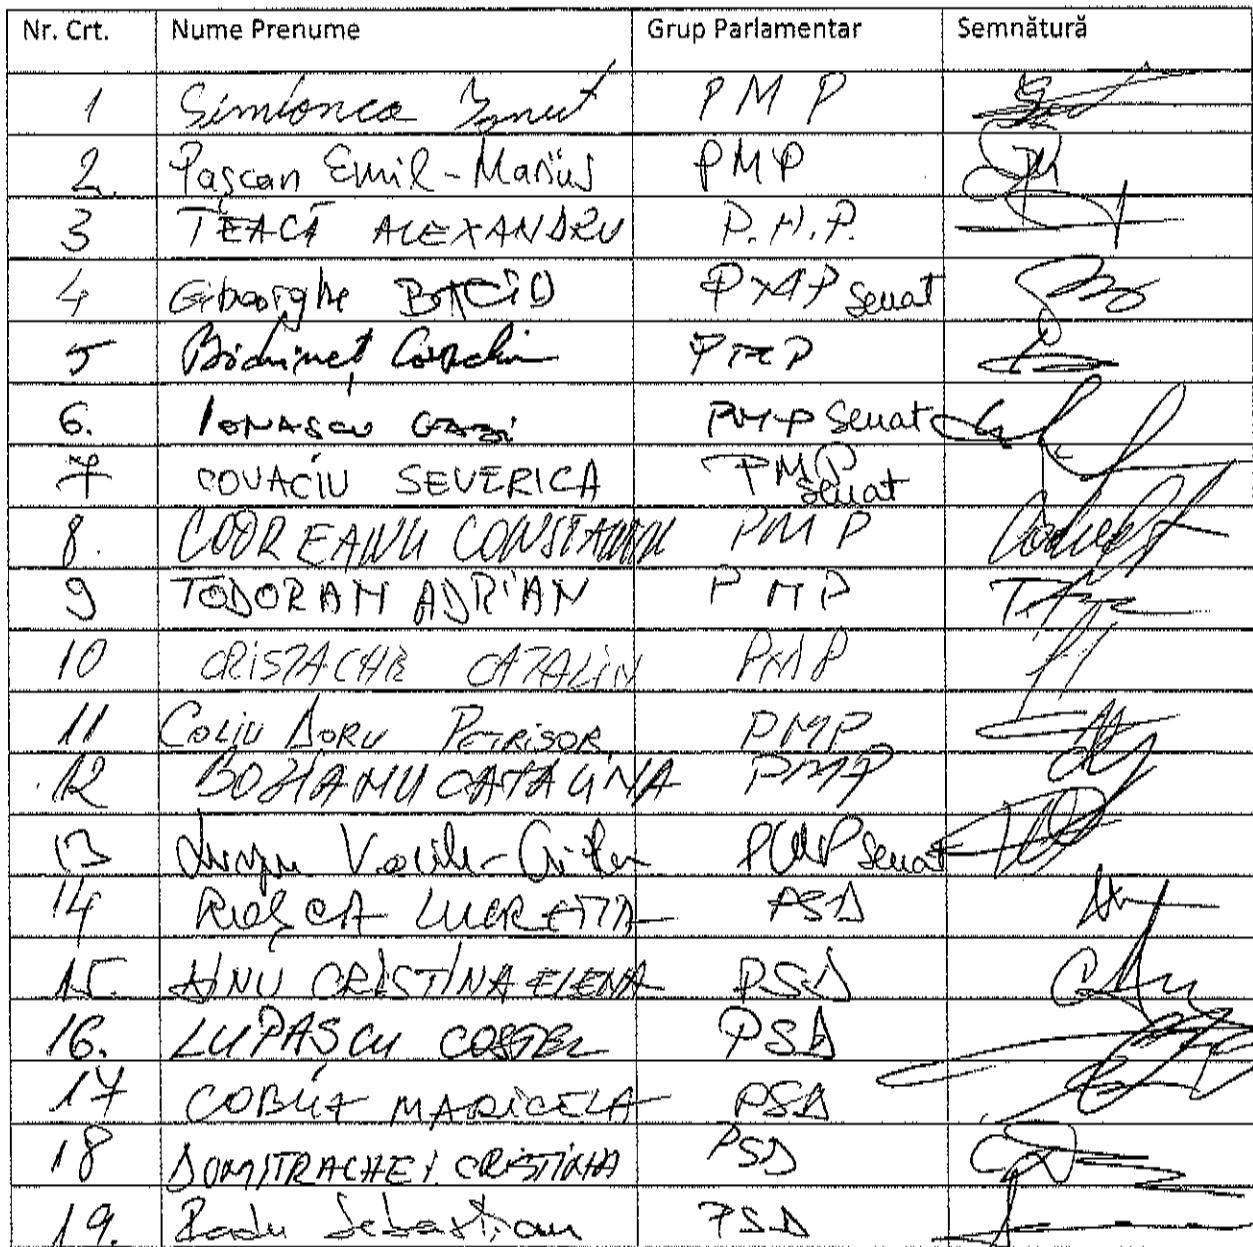 Nr. Crt. Nume Prenume Grup Parlamentar Semnătură
1 Simionca Ionuț PMP
2. Pașcan Emil-Marius PMP
3 TEACĂ ALEXANDRU P.M.P.
4 Gheorghe BACIU PMP Senat
5 PMP
6. IONAȘCU GABI PMP Senat
7 COVACIU SEVERICA PMP Senat
8. CODREANU CONSTANTIN PMP
9 TODORAN ADRIAN PMP
10 CRISTACHE CATALIN PMP
11 COLIU DORU PETRIȘOR PMP
12 BOZIANU CATALINA PMP
13 PMP Senat
14 ROȘCA LUCREȚIA PSD
15. DINU CRISTINA ELENA PSD
16. LUPAȘCU COSTEL PSD
17 COBUZ MARICELA PSD
18 DUMITRACHE I. CRISTINA PSD
19. Radu Sebastian PSD